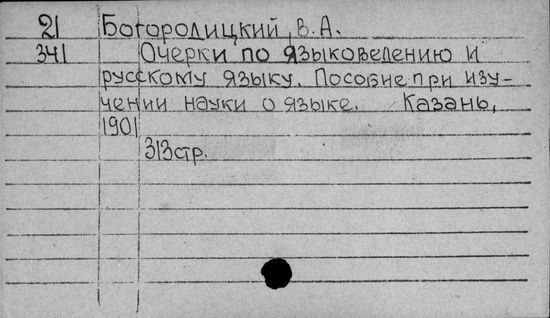 21 Богородицкий, В.А.
341 Очерки по языковедению и
русскому языку. Пособие при изу-
чении науки о языке. Казань,
1901
313стр.